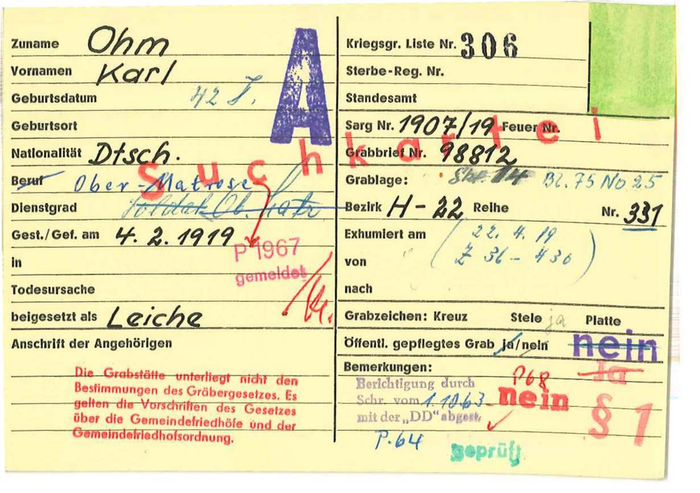 Zuname Ohm
Vornamen Karl
Geburtsdatum 42 J.
Geburtsort
Nationalität Dtsch.
Beruf Ober-Matrose
Dienstgrad Soldat
Gest./Gef. am 4.2.1919
in
Todesursache
beigesetzt als Leiche
Anschrift der Angehörigen
A
P 1967
gemeldet
Die Grabstätte unterliegt nicht den
Bestimmungen des Gräbergesetzes. Es
gelten die Vorschriften des Gesetzes
über die Gemeindefriedhöfe und der
Gemeindefriedhofsordnung.
Suchkartei
Kriegsgr. Liste Nr. 306
Sterbe-Reg. Nr.
Standesamt
Sarg Nr. 1907/19 Feuer Nr.
Grabbrief Nr. 98812
Grablage: Bl. 75 No 25
Bezirk H-22 Reihe Nr. 331
Exhumiert am ( 22.4.19
von Z 36-430 )
nach
Grabzeichen: Kreuz Stele ja Platte
Öffentl. gepflegtes Grab ja/nein nein
Bemerkungen: P68 Ja
Berichtigung durch
Schr. vom 1.10.63 nein
mit der „DD" abgest.
P.64 geprüft
§ 1